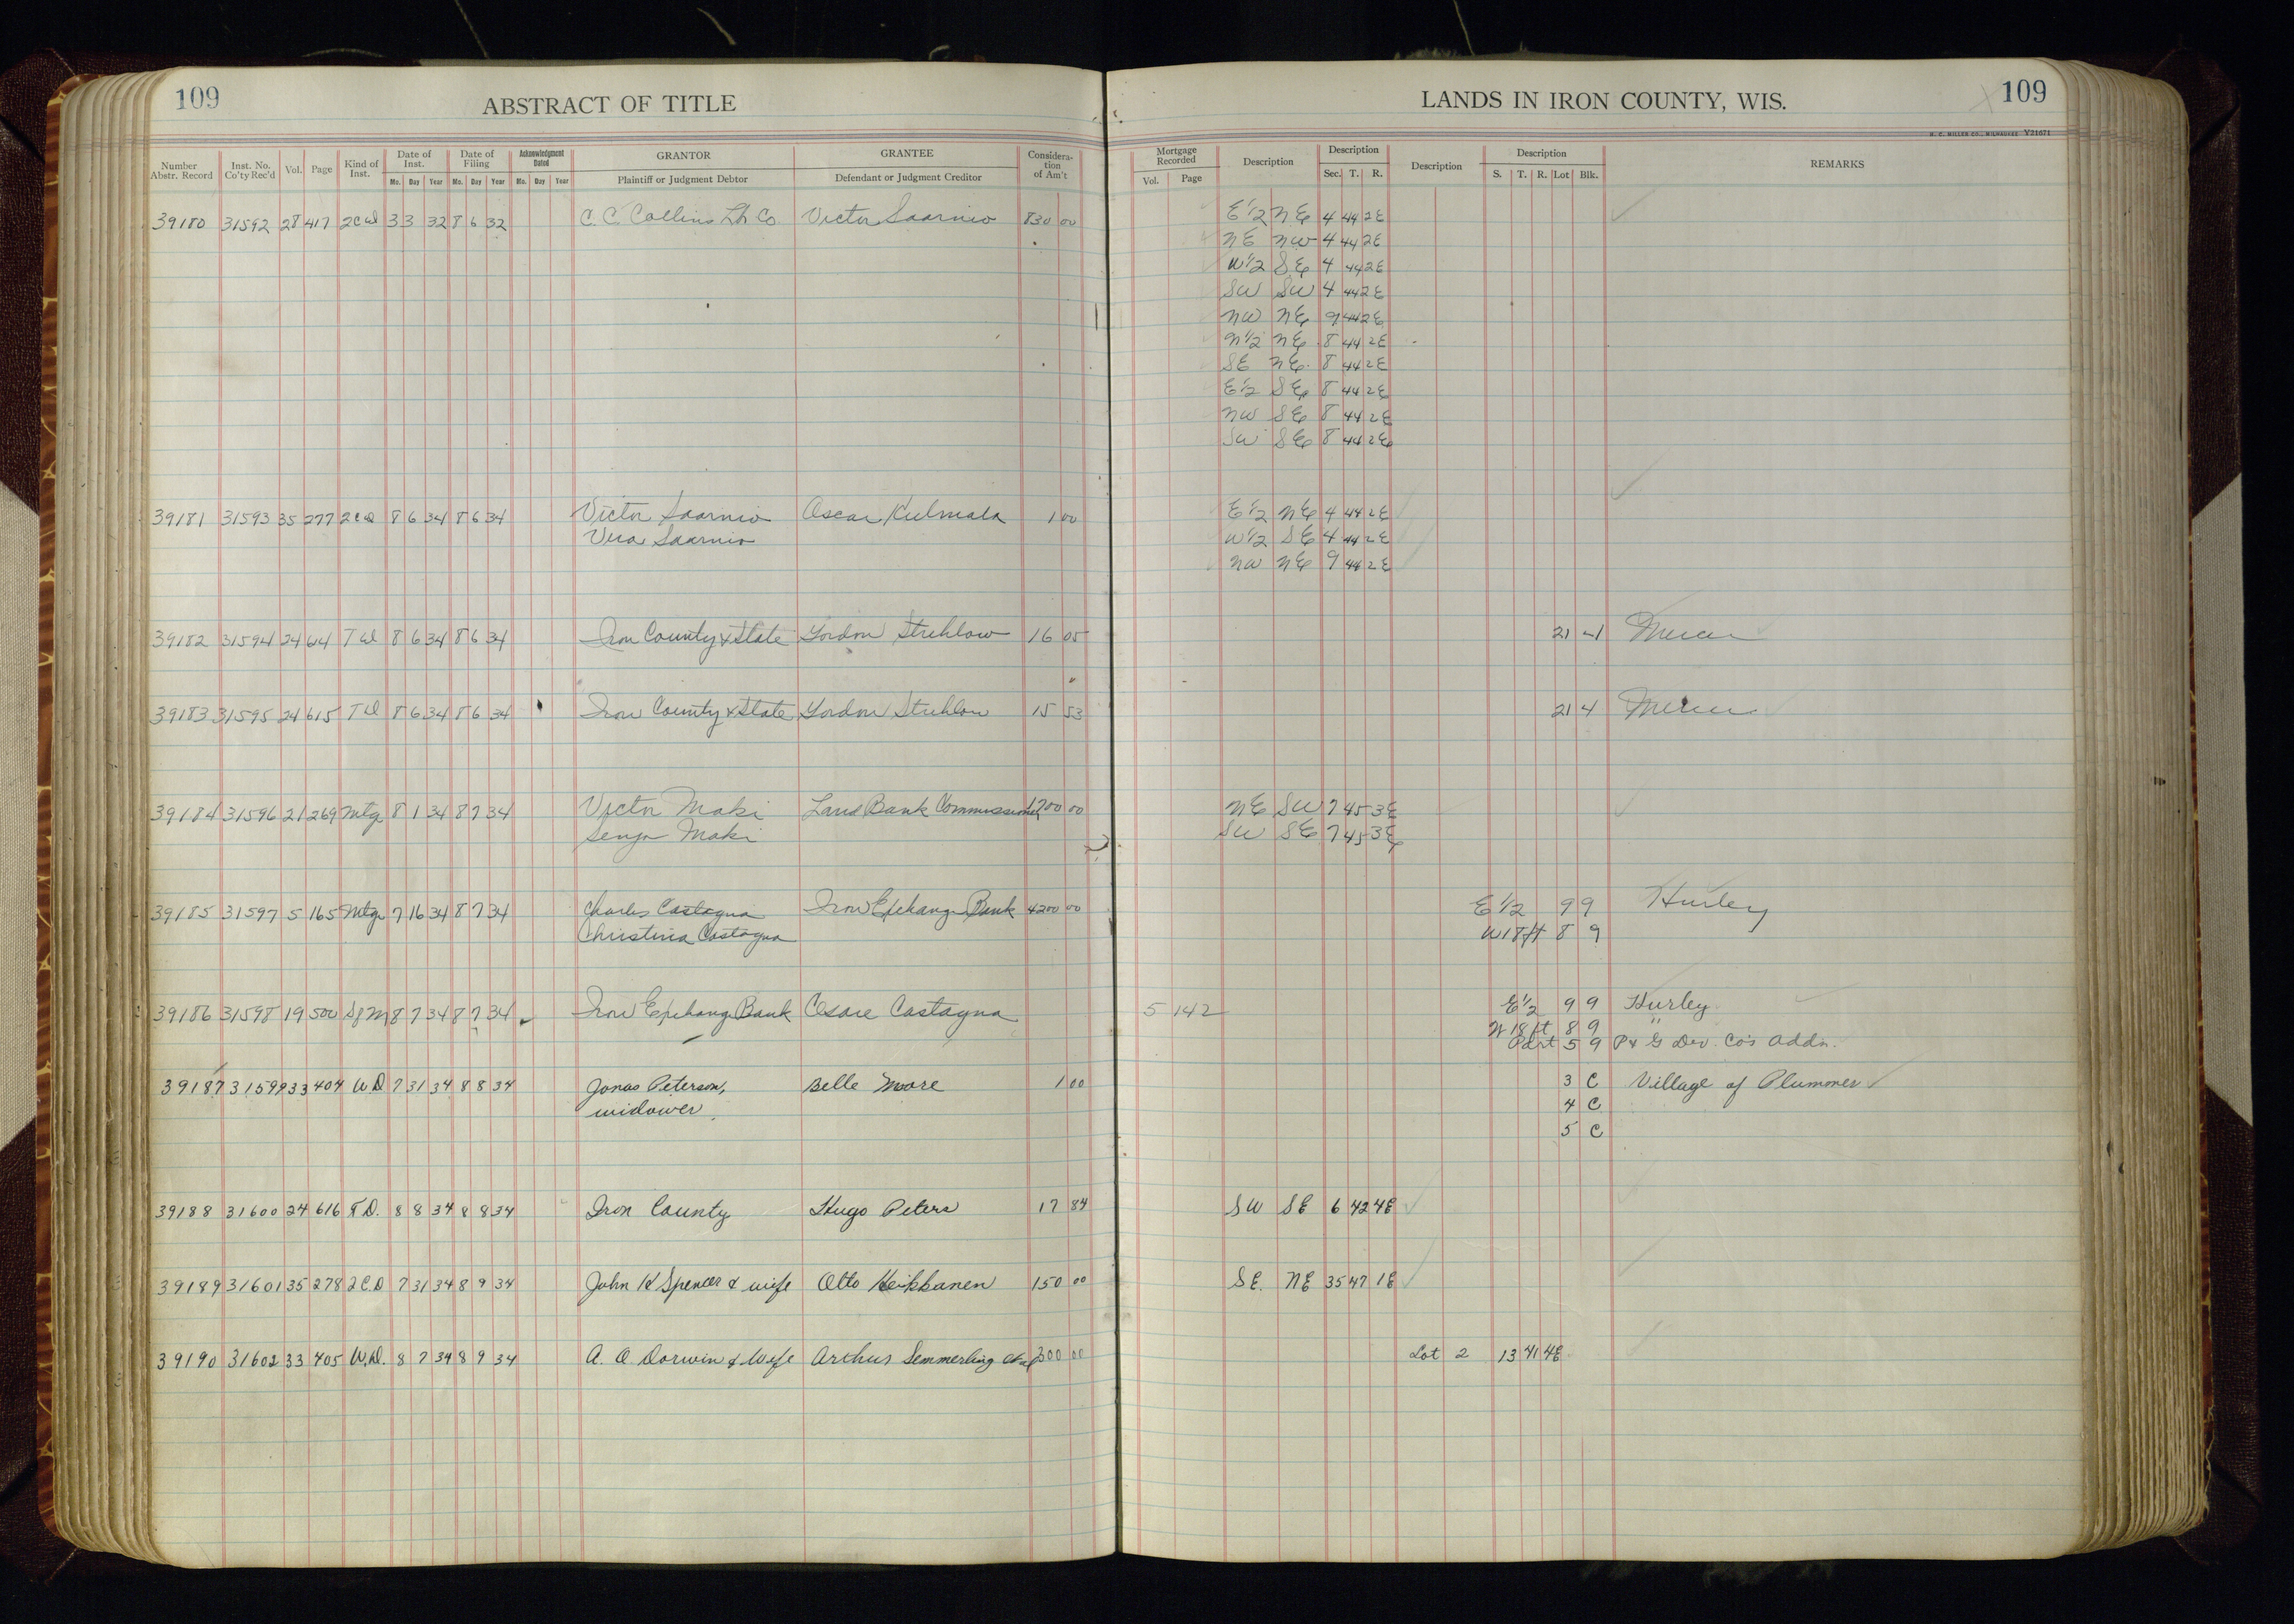 109
ABSTRACT OF TITLE
Number Abstr. Record Inst. No. Co'ty Rec'd Vol. Page Kind of Inst. Date of Inst. Date of Filing Acknowledgment Dated GRANTOR GRANTEE Consideration of Am't
Mo. Day Year Mo. Day Year Mo. Day Year Plaintiff or Judgment Debtor Defendant or Judgment Creditor
39180 31592 28 417 2CD 3 3 32 8 6 32 C. C. Collins Lb Co Victor Saarnio 830 00
39181 31593 35 277 2CD 8 6 34 8 6 34 Victor Saarnio Oscar Kulmala 1 00
Saarnio
39182 31594 24 614 TD 8 6 34 8 6 34 Iron County & State Strehlow 16 05
39183 31595 24 615 TD 8 6 34 8 6 34 Iron County & State Strehlow 15 53
39184 31596 21 269 Mtg 8 1 34 8 7 34 Victor Maki Land Bank Commissioner 1200 00
Senja Maki
39185 31597 5 165 Mtg 7 16 34 8 7 34 Charles Castagna Iron Exchange Bank 4200 00
Christina Castagna
39186 31598 19 500 8 7 34 8 7 34 Iron Exchange Bank Cesare Castagna
39187 31599 33 404 W.D 7 31 34 8 8 34 Jonas Peterson, Belle Moore 1 00
widower.
39188 31600 24 616 T.D. 8 8 34 8 8 34 Iron County Hugo Peters 17 84
39189 31601 35 278 2C.D 7 31 34 8 9 34 John K Spencer & wife Otto Heikkanen 150 00
39190 31602 33 405 W.D. 8 7 34 8 9 34 A. O. Dorwin & Wife Arthur Semmerling 300 00
LANDS IN IRON COUNTY, WIS.
109
H. C. MILLER CO., MILWAUKEE Y21671
Mortgage Recorded Description Description Description Description REMARKS
Vol. Page Sec. T. R. S. T. R. Lot Blk.
E 1/2 NE 4 44 2E
NE NW 4 44 2E
W 1/2 SE 4 44 2E
SW SW 4 44 2E
NW NE 9 44 2E
N 1/2 NE 8 44 2E
SE NE 8 44 2E
E 1/2 SE 8 44 2E
NW SE 8 44 2E
SW SE 8 44 2E
E 1/2 NE 4 44 2E
W 1/2 SE 4 44 2E
NW NE 9 44 2E
21 4 Mercer
21 4 Mercer
NE SW 7 45 3E
SW SE 7 45 3E
E 1/2 9 9 Hurley
W 18 ft 8 9
5 142 E 1/2 9 9 Hurley
W 18 ft 8 9 "
Part 5 9 P & G Dev. Co's Addn.
3 C Village of Plummer
4 C
5 C
SW SE 6 42 4E
SE. NE 35 47 1E
Lot 2 13 41 4E